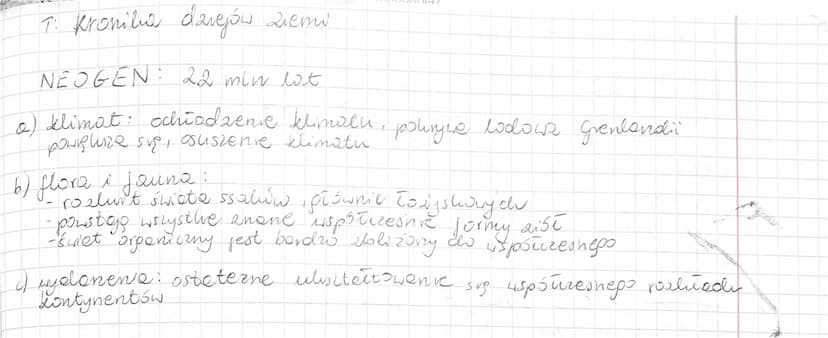 T: Kronika dziejów ziemi
NEOGEN: 22 mln lat
a) klimat: ochłodzenie klimatu, pokrywa lodowa Grenlandii
powiększa się, osuszenie klimatu
b) flora i fauna:
- rozkwit świata ssaków, głównie łożyskowych
- powstają wszystkie znane współcześnie formy
- świat organiczny jest bardzo zbliżony do współczesnego
c) wydarzenia: ostateczne ukształtowanie się współczesnego rozkładu
kontynentów